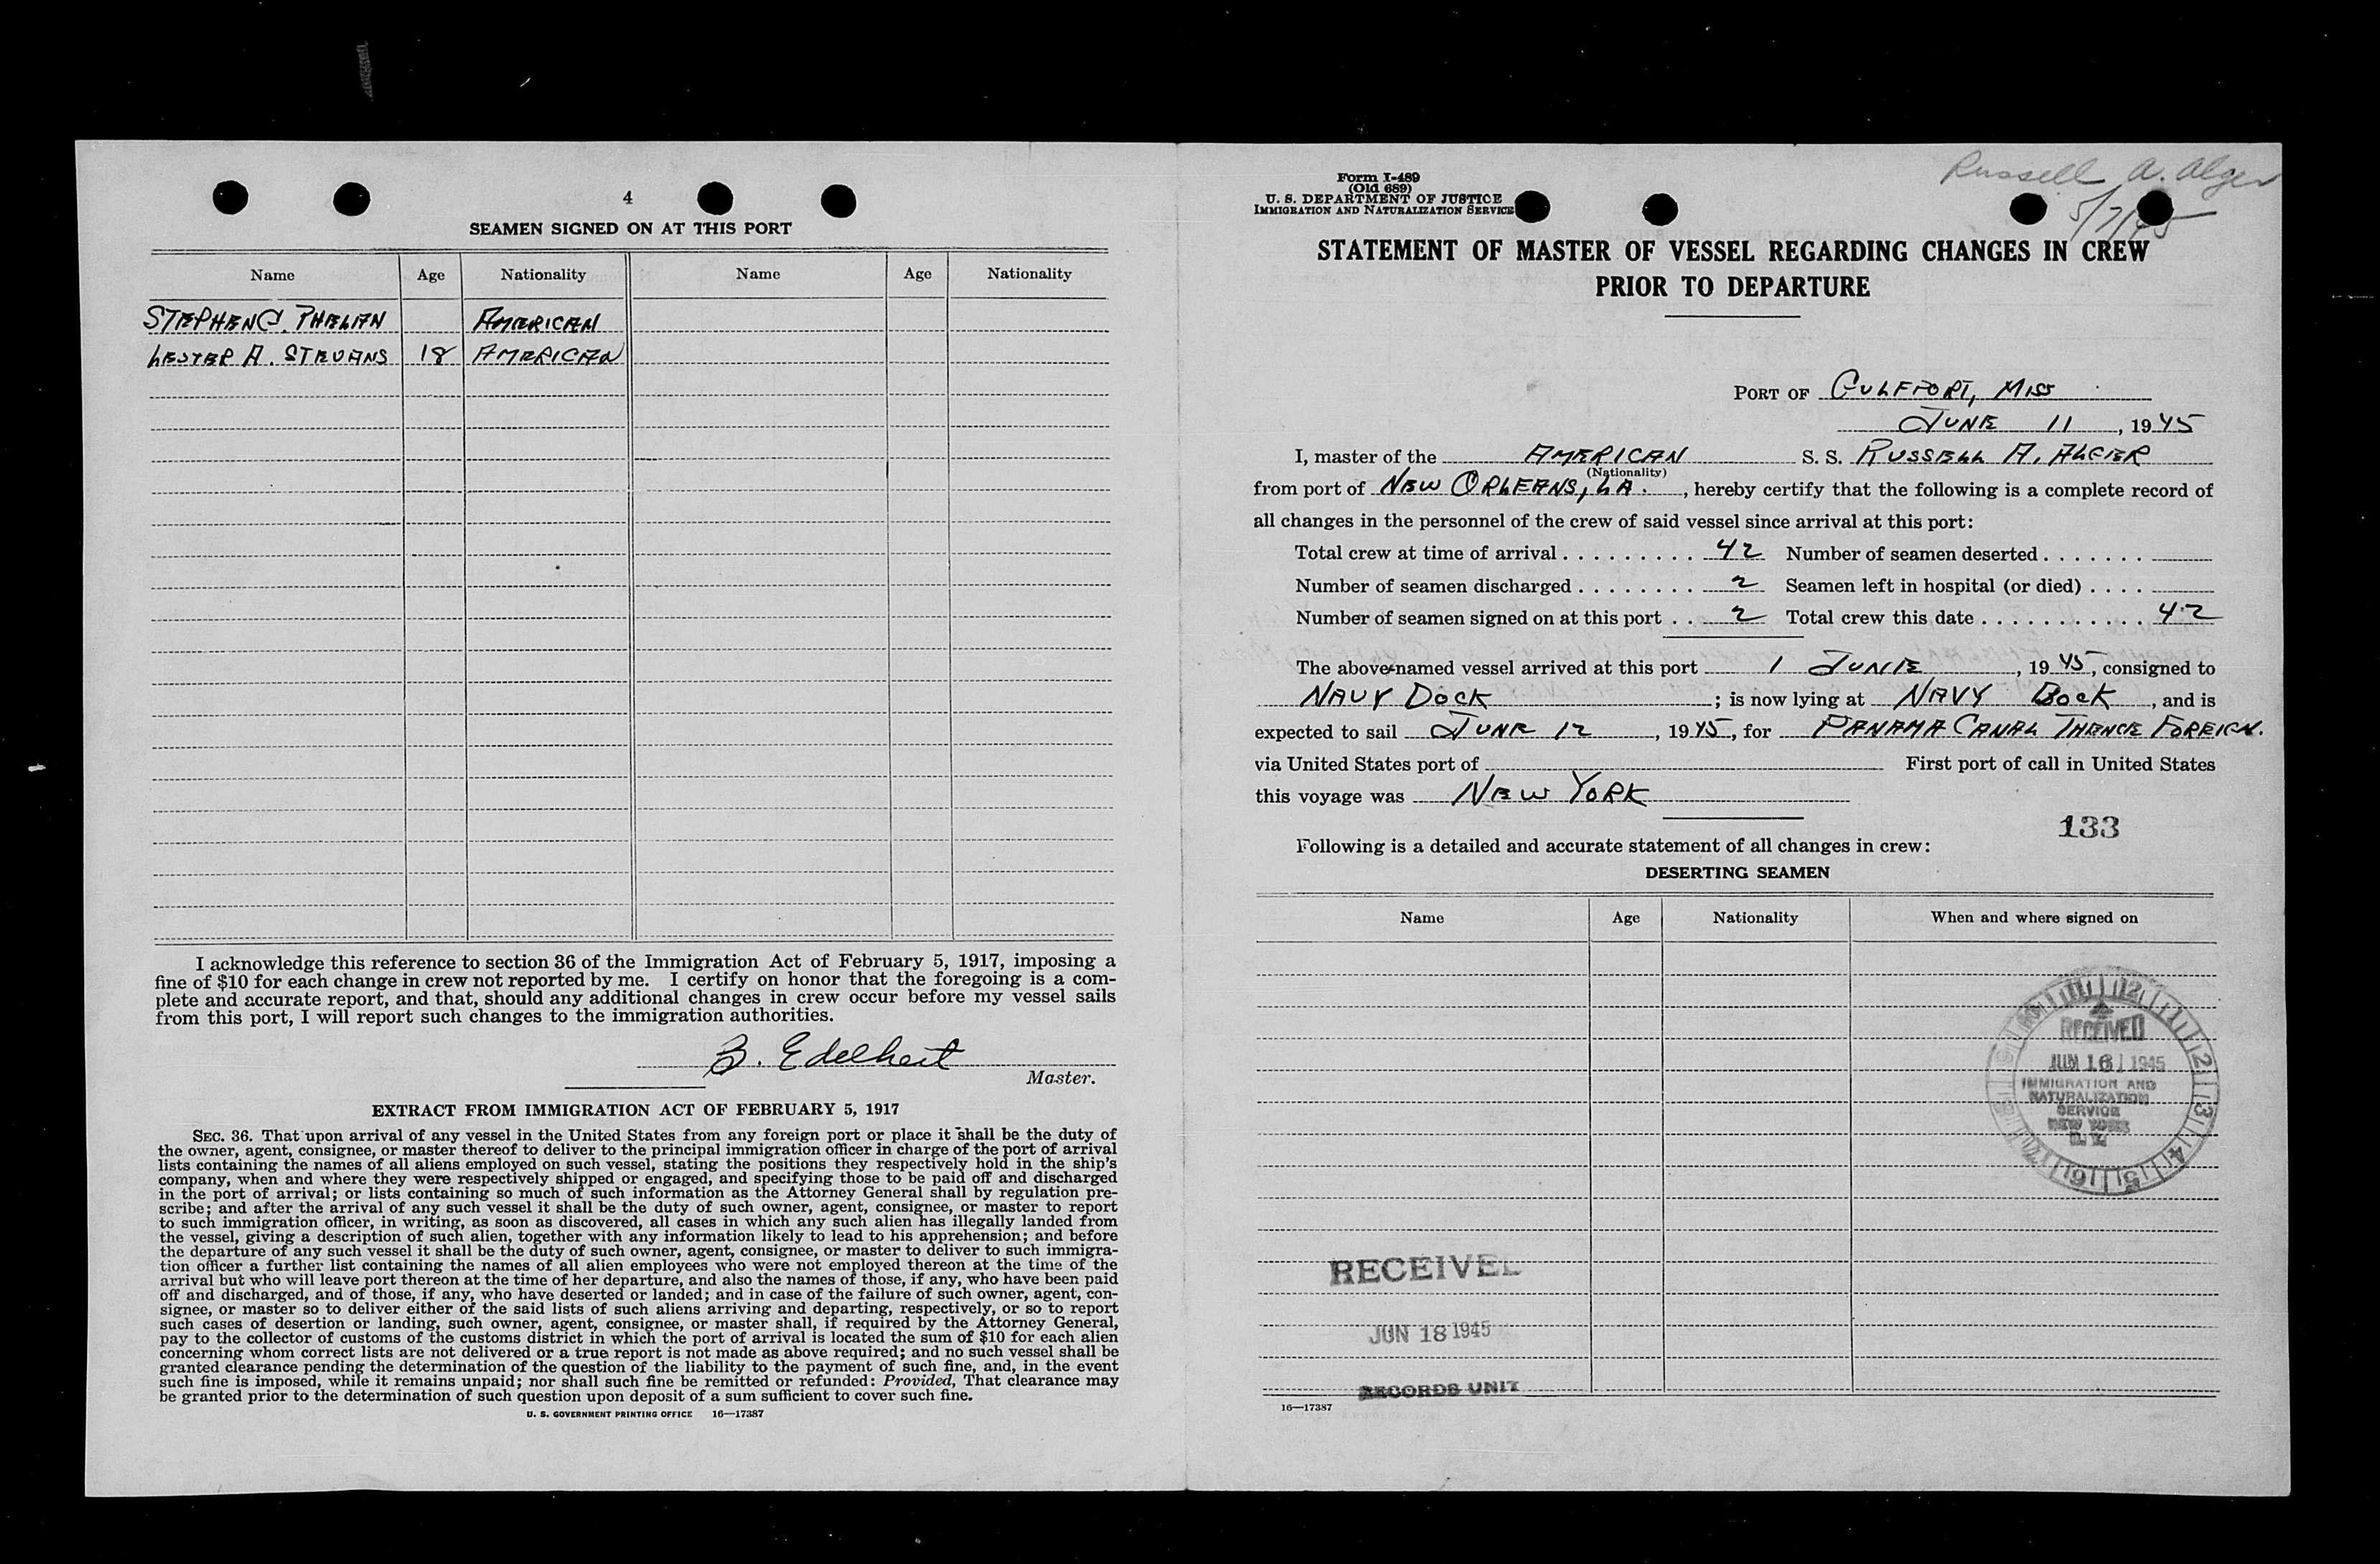 4
SEAMEN SIGNED ON AT THIS PORT
Name Age Nationality Name Age Nationality
STEPHEN C. PHELAN AMERICAN
LESTER A. STEVANS 18 AMERICAN
I acknowledge this reference to section 36 of the Immigration Act of February 5, 1917, imposing a
fine of $10 for each change in crew not reported by me. I certify on honor that the foregoing is a com-
plete and accurate report, and that, should any additional changes in crew occur before my vessel sails
from this port, I will report such changes to the immigration authorities.
B. Edelheit
Master.
EXTRACT FROM IMMIGRATION ACT OF FEBRUARY 5, 1917
SEC. 36. That upon arrival of any vessel in the United States from any foreign port or place it shall be the duty of
the owner, agent, consignee, or master thereof to deliver to the principal immigration officer in charge of the port of arrival
lists containing the names of all aliens employed on such vessel, stating the positions they respectively hold in the ship's
company, when and where they were respectively shipped or engaged, and specifying those to be paid off and discharged
in the port of arrival; or lists containing so much of such information as the Attorney General shall by regulation pre-
scribe; and after the arrival of any such vessel it shall be the duty of such owner, agent, consignee, or master to report
to such immigration officer, in writing, as soon as discovered, all cases in which any such alien has illegally landed from
the vessel, giving a description of such alien, together with any information likely to lead to his apprehension; and before
the departure of any such vessel it shall be the duty of such owner, agent, consignee, or master to deliver to such immigra-
tion officer a further list containing the names of all alien employees who were not employed thereon at the time of the
arrival but who will leave port thereon at the time of her departure, and also the names of those, if any, who have been paid
off and discharged, and of those, if any, who have deserted or landed; and in case of the failure of such owner, agent, con-
signee, or master so to deliver either of the said lists of such aliens arriving and departing, respectively, or so to report
such cases of desertion or landing, such owner, agent, consignee, or master shall, if required by the Attorney General,
pay to the collector of customs of the customs district in which the port of arrival is located the sum of $10 for each alien
concerning whom correct lists are not delivered or a true report is not made as above required; and no such vessel shall be
granted clearance pending the determination of the question of the liability to the payment of such fine, and, in the event
such fine is imposed, while it remains unpaid; nor shall such fine be remitted or refunded: Provided, That clearance may
be granted prior to the determination of such question upon deposit of a sum sufficient to cover such fine.
U. S. GOVERNMENT PRINTING OFFICE 16—17387
Form I-489
(Old 689)
U. S. DEPARTMENT OF JUSTICE
IMMIGRATION AND NATURALIZATION SERVICE
Russell A. Alger
5/7/45
STATEMENT OF MASTER OF VESSEL REGARDING CHANGES IN CREW
PRIOR TO DEPARTURE
PORT OF GULFPORT, MISS
JUNE 11, 1945
I, master of the AMERICAN S. S. RUSSELL A. ALGER
(Nationality)
from port of NEW ORLEANS, LA., hereby certify that the following is a complete record of
all changes in the personnel of the crew of said vessel since arrival at this port:
Total crew at time of arrival . . . . . . . . . 42 Number of seamen deserted . . . . . . .
Number of seamen discharged . . . . . . . . 2 Seamen left in hospital (or died) . . . .
Number of seamen signed on at this port . . 2 Total crew this date . . . . . . . . . . . 42
The above-named vessel arrived at this port 1 JUNE, 1945, consigned to
NAVY DOCK; is now lying at NAVY DOCK, and is
expected to sail JUNE 12, 1945, for PANAMA CANAL THENCE FOREIGN.
via United States port of First port of call in United States
this voyage was NEW YORK
133
Following is a detailed and accurate statement of all changes in crew:
DESERTING SEAMEN
Name Age Nationality When and where signed on
RECEIVED
JUN 16 1945
IMMIGRATION AND
NATURALIZATION
SERVICE
NEW YORK
N. Y.
RECEIVED
JUN 18 1945
RECORDS UNIT
16—17387